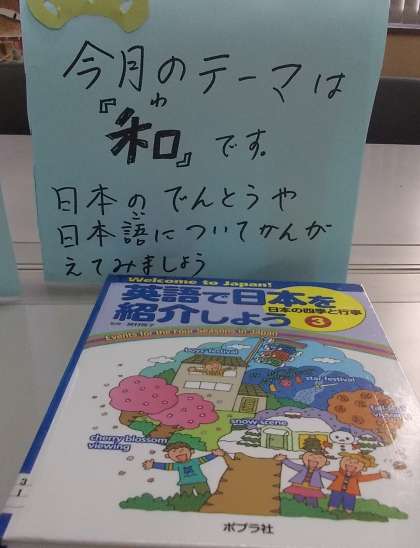 今月のテーマは
わ
『和』です。
日本のでんとうや
ご
日本語についてかんが
えてみましょう
Welcome to Japan!
英語で日本を
紹介しよう
日本の四季と行事
3
Events for the Four Seasons in Japan
boys festival
star festival
snow scene
cherry blossom
viewing
ポプラ社